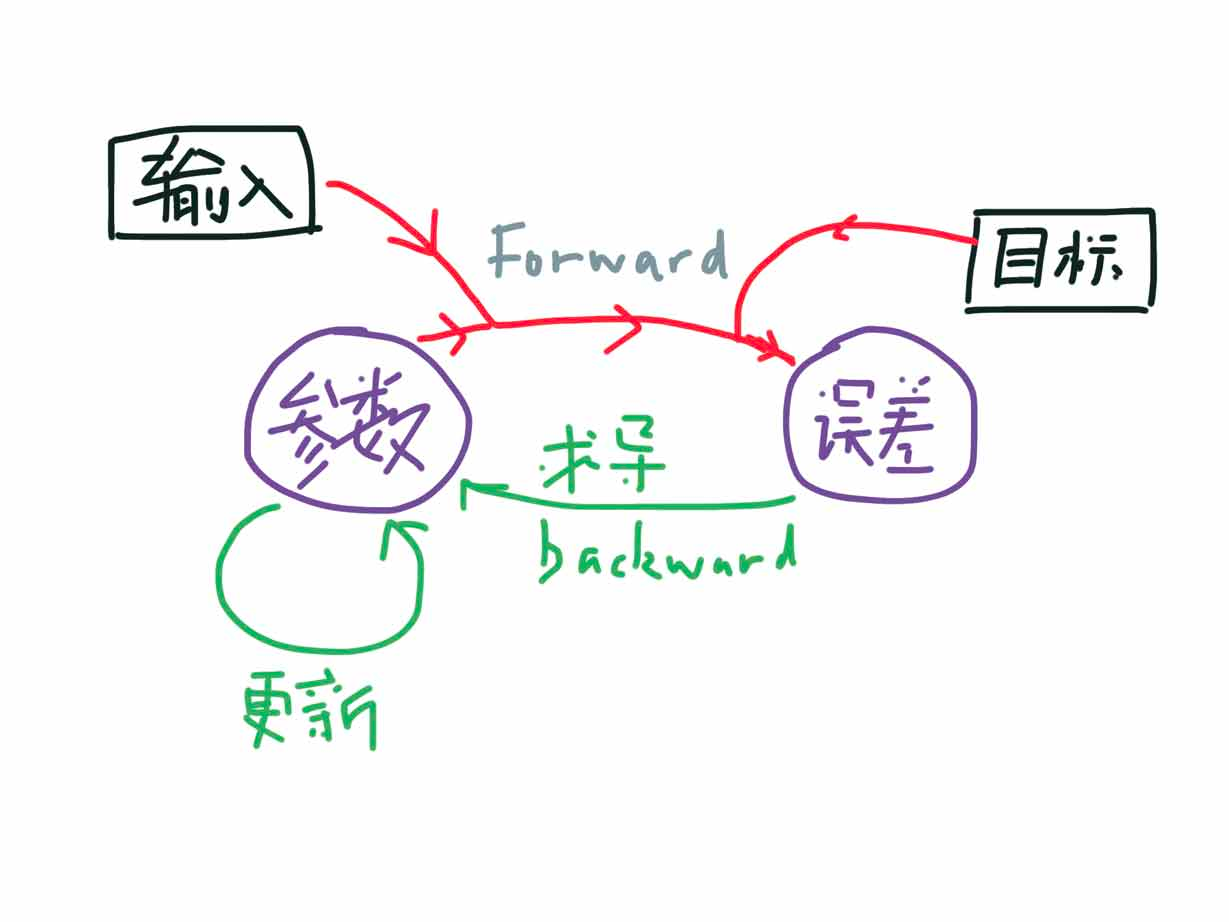 输入
Forward
目标
参数
误差
求导
backward
更新